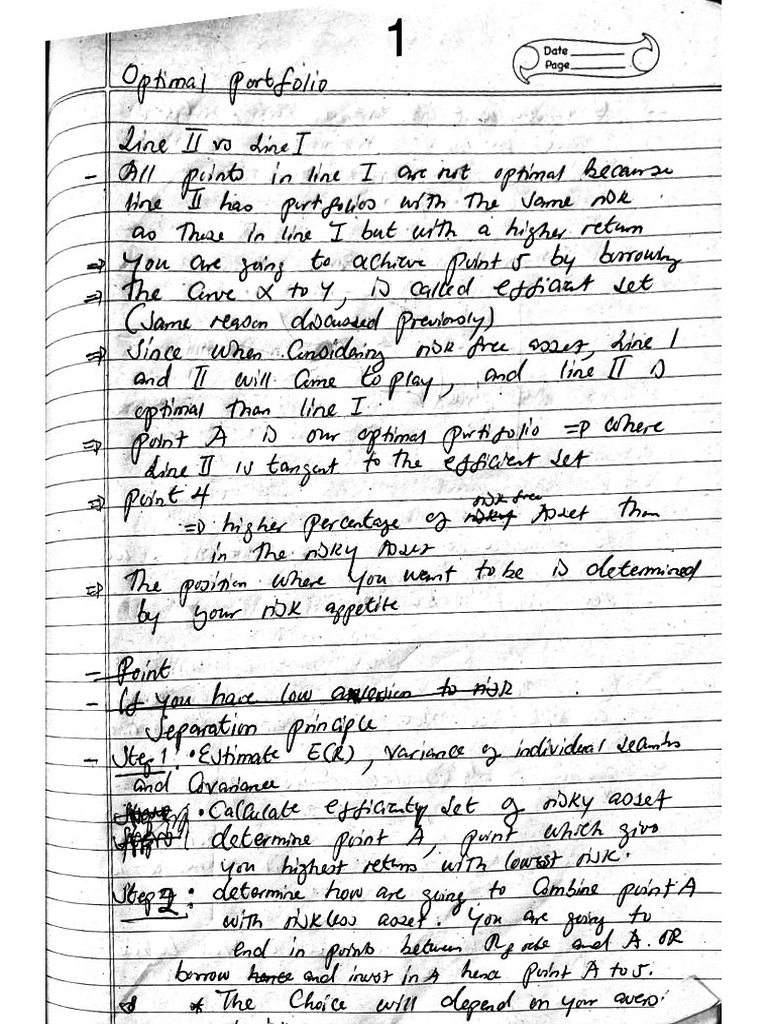 1
Date
Page
Optimal Portfolio
Line II vs Line I
- All points in line I are not optimal because
line II has portfolios with the same risk
as those in line I but with a higher return
=> You are going to achieve point 5 by borrowing
=> The Curve X to Y, is called efficient set
(Same reason discussed previously)
=> Since when Considering risk free asset, Line I
and II will Come to play, and line II is
optimal than line I
=> Point A is our optimal portifolio => where
Line II is tangent to the efficient set
=> Point 4
risk free
=> higher percentage of risky Asset than
in the risky Asset
=> The position where you want to be is determined
by your risk appetite
- Point
- If you have low aversion to risk
Separation principle
- Step 1: • Estimate E(R), variance of individual
and Covariance
• Calculate efficiency set of risky asset
determine point A, point which give
you highest return with lowest risk.
Step 2: determine how are going to Combine point A
with riskless asset. You are going to
end in points between and A. OR
borrow hence and invest in A hence point A to 5.
* The Choice will depend on your